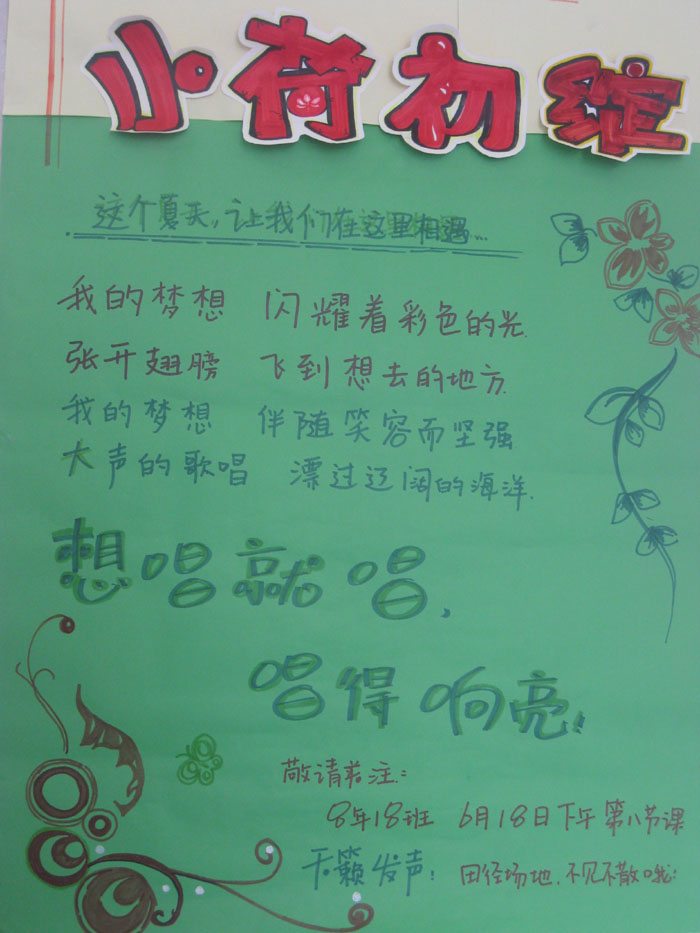 小荷初绽
这个夏天,让我们在这里相遇...
我的梦想 闪耀着彩色的光.
张开翅膀 飞到想去的地方.
我的梦想 伴随笑容而坚强
大声的歌唱 漂过辽阔的海洋.
想唱就唱,
唱得响亮!
敬请关注:
8年18班 6月18日下午第八节课
天籁发声: 田径场地.不见不散哦!